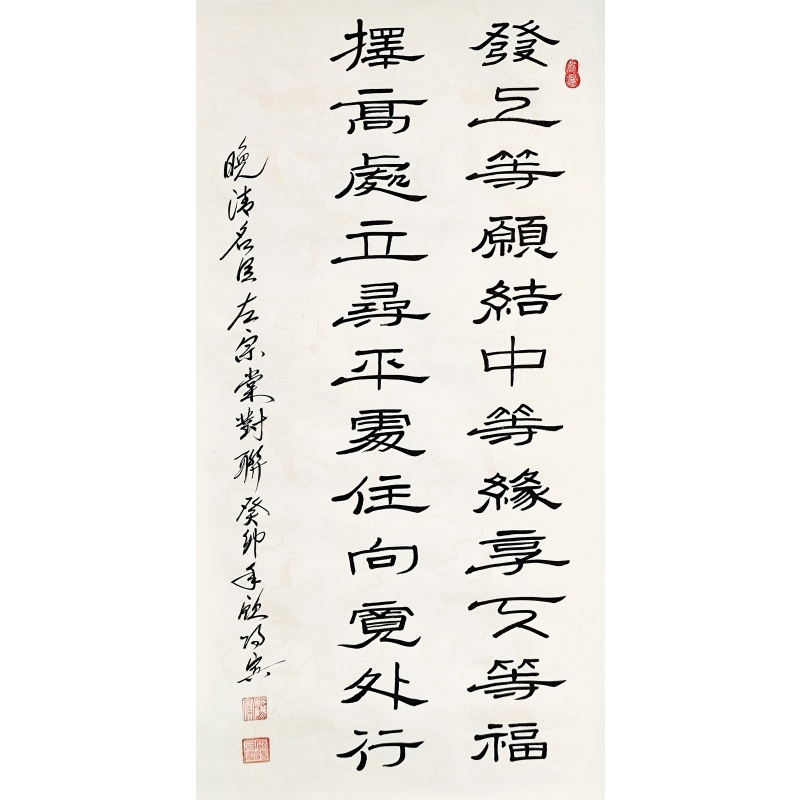 發上等願結中等緣享下等福
擇高處立尋平處住向寬处行
晚清名臣左宗棠對聯癸卯年